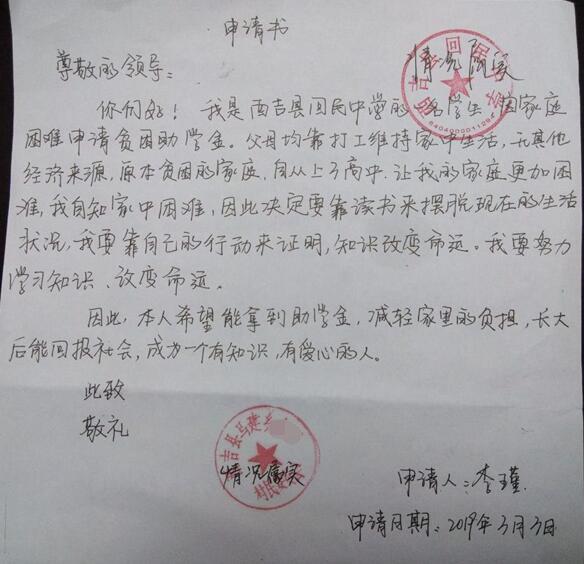 申请书
情况属实
尊敬的领导：
你们好！我是西吉县回民中学的一名学生，因家庭
困难申请贫困助学金。父母均靠打工维持家中生活，无其他
经济来源，原本贫困的家庭，自从上了高中，让我的家庭更加困
难，我自知家中困难，因此决定要靠读书来摆脱现在的生活
状况，我要靠自己的行动来证明，知识改变命运。我要努力
学习知识、改变命运。
因此，本人希望能拿到助学金，减轻家里的负担，长大
后能回报社会，成为一个有知识，有爱心的人。
此致
敬礼
吉县马建乡
村民
情况属实
申请人：李瑾
申请日期：2019年3月3日